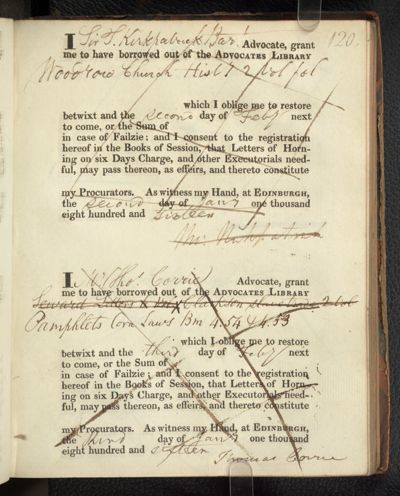 120.
I Sir T. Kirkpatrick Bart. Advocate, grant
me to have borrowed out of the ADVOCATES LIBRARY
Woodrow Church Hist. 2 vol fol
which I oblige me to restore
betwixt and the second day of Feby next
to come, or the Sum of
in case of Failzie; and I consent to the registration
hereof in the Books of Session, that Letters of Horn-
ing on six Days Charge, and other Executorials need-
ful, may pass thereon, as effeirs, and thereto constitute
my Procurators. As witness my Hand, at EDINBURGH,
the second day of Jany one thousand
eight hundred and sixteen
Kirkpatrick
I Mr Tho. Corrie Advocate, grant
me to have borrowed out of the ADVOCATES LIBRARY
Seward Letters 2 vol
Pamphlets Corn Laws Bm 4.54 & 4.53
which I oblige me to restore
betwixt and the third day of Feby next
to come, or the Sum of
in case of Failzie; and I consent to the registration
hereof in the Books of Session, that Letters of Horn-
ing on six Days Charge, and other Executorials need-
ful, may pass thereon, as effeirs, and thereto constitute
my Procurators. As witness my Hand, at EDINBURGH,
the third day of Jany one thousand
eight hundred and sixteen
Thomas Corrie